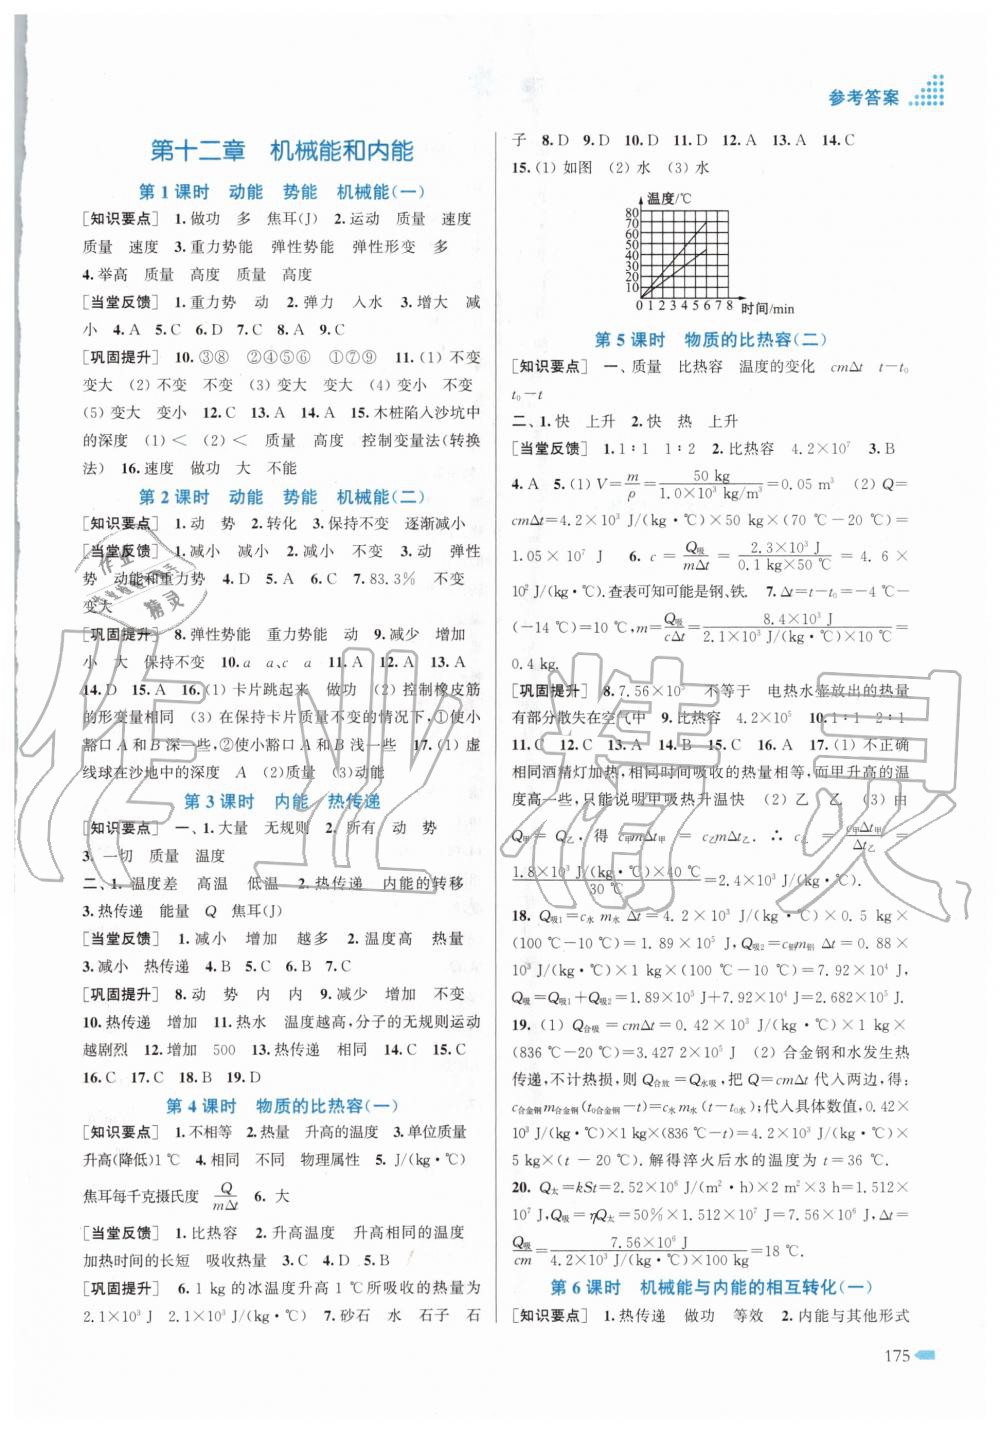 参考答案
第十二章 机械能和内能
第1课时 动能 势能 机械能(一)
[知识要点] 1.做功 多 焦耳(J) 2.运动 质量 速度
质量 速度 3.重力势能 弹性势能 弹性形变 多
4.举高 质量 高度 质量 高度
[当堂反馈] 1.重力势 动 2.弹力 人水 3.增大 减
小 4.A 5.C 6.D 7.C 8.A 9.C
[巩固提升] 10.③⑧ ②④⑤⑥ ①⑦⑨ 11.(1) 不变
变大 (2) 不变 不变 (3) 变大 不变 (4) 减小 不变
(5) 变大 变小 12.C 13.A 14.A 15.木桩陷入沙坑中
的深度 (1)< (2)< 质量 高度 控制变量法(转换
法) 16.速度 做功 大 不能
第2课时 动能 势能 机械能(二)
[知识要点] 1.动 势 2.转化 3.保持不变 逐渐减小
[当堂反馈] 1.减小 减小 2.减小 不变 3.动 弹性
势 动能和重力势 4.D 5.D 6.D 7.83.3% 不变
变大
[巩固提升] 8.弹性势能 重力势能 动 9.减少 增加
小 大 保持不变 10.a a、c a 11.A 12.A 13.A
14.D 15.A 16.(1) 卡片跳起来 做功 (2) 控制橡皮筋
的形变量相同 (3) 在保持卡片质量不变的情况下,①使小
豁口A和B深一些,②使小豁口A和B浅一些 17.(1) 虚
线球在沙地中的深度 A (2)质量 (3)动能
第3课时 内能 热传递
[知识要点] 一、1.大量 无规则 2.所有 动 势
3.一切 质量 温度
二、1.温度差 高温 低温 2.热传递 内能的转移
3.热传递 能量 Q 焦耳(J)
[当堂反馈] 1.减小 增加 越多 2.温度高 热量
3.减小 热传递 4.B 5.C 6.B 7.C
[巩固提升] 8.动 势 内 内 9.减少 增加 不变
10.热传递 增加 11.热水 温度越高,分子的无规则运动
越剧烈 12.增加 500 13.热传递 相同 14.C 15.C
16.C 17.C 18.B 19.D
第4课时 物质的比热容(一)
[知识要点] 1.不相等 2.热量 升高的温度 3.单位质量
升高(降低)1 ℃ 4.相同 不同 物理属性 5.J/(kg·℃)
焦耳每千克摄氏度 Q/mΔt 6.大
[当堂反馈] 1.比热容 2.升高温度 升高相同的温度
加热时间的长短 吸收热量 3.C 4.D 5.B
[巩固提升] 6.1 kg 的冰温度升高 1 ℃所吸收的热量为
2.1×10³ J 2.1×10³ J/(kg·℃) 7.砂石 水 石子 石
子 8.D 9.D 10.D 11.D 12.A 13.A 14.C
15.(1) 如图 (2) 水 (3) 水
温度/℃
80
70
60
50
40
30
20
10
0 1 2 3 4 5 6 7 8 时间/min
第5课时 物质的比热容(二)
[知识要点] 一、质量 比热容 温度的变化 cmΔt t-t₀
t₀-t
二、1.快 上升 2.快 热 上升
[当堂反馈] 1.1∶1 1∶2 2.比热容 4.2×10⁷ 3.B
4.A 5.(1) V=m/ρ=50 kg/1.0×10³ kg/m³=0.05 m³ (2) Q=
cmΔt=4.2×10³ J/(kg·℃)×50 kg×(70 ℃-20 ℃)=
1.05×10⁷ J 6. c=Q吸/mΔt=2.3×10³ J/0.1 kg×50 ℃=4.6×
10² J/(kg·℃).查表可知可能是钢、铁. 7.Δt=t-t₀=-4 ℃-
(-14 ℃)=10 ℃,m=Q吸/cΔt=8.4×10³ J/2.1×10³ J/(kg·℃)×10 ℃=
0.4 kg.
[巩固提升] 8.7.56×10⁵ 不等于 电热水壶放出的热量
有部分散失在空气中 9.比热容 4.2×10⁵ 10.1∶1 2∶1
11.C 12.C 13.A 14.B 15.C 16.A 17.(1) 不正确
相同酒精灯加热,相同时间吸收的热量相等,而甲升高的温
度高一些,只能说明甲吸热升温快 (2) 乙 乙 (3) 由
Q甲=Q乙,得 c甲mΔt甲=c乙mΔt乙.∴c乙=c甲Δt甲/Δt乙=
1.8×10³ J/(kg·℃)×40 ℃/30 ℃=2.4×10³ J/(kg·℃).
18. Q吸1=c水 m水 Δt=4.2×10³ J/(kg·℃)×0.5 kg×
(100 ℃-10 ℃)=1.89×10⁵ J,Q吸2=c铝m铝 Δt=0.88×
10³ J/(kg·℃)×1 kg×(100 ℃-10 ℃)=7.92×10⁴ J,
Q吸=Q吸1+Q吸2=1.89×10⁵ J+7.92×10⁴ J=2.682×10⁵ J.
19. (1) Q合吸=cmΔt=0.42×10³ J/(kg·℃)×1 kg×
(836 ℃-20 ℃)=3.427 2×10⁵ J (2) 合金钢和水发生热
传递,不计热损,则Q合放=Q水吸,把Q=cmΔt代入两边,得:
c合金钢m合金钢(t0合金钢-t)=c水m水(t-t0水);代入具体数值,0.42×
10³ J/(kg·℃)×1 kg×(836 ℃-t)=4.2×10³ J/(kg·℃)×
5 kg×(t-20 ℃).解得淬火后水的温度为t=36 ℃.
20. Q太=kSt=2.52×10⁶ J/(m²·h)×2 m²×3 h=1.512×
10⁷ J,Q吸=ηQ太=50%×1.512×10⁷ J=7.56×10⁶ J,Δt=
Q吸/cm=7.56×10⁶ J/4.2×10³ J/(kg·℃)×100 kg=18 ℃.
第6课时 机械能与内能的相互转化(一)
[知识要点] 1.热传递 做功 等效 2.内能与其他形式
175
作业精灵